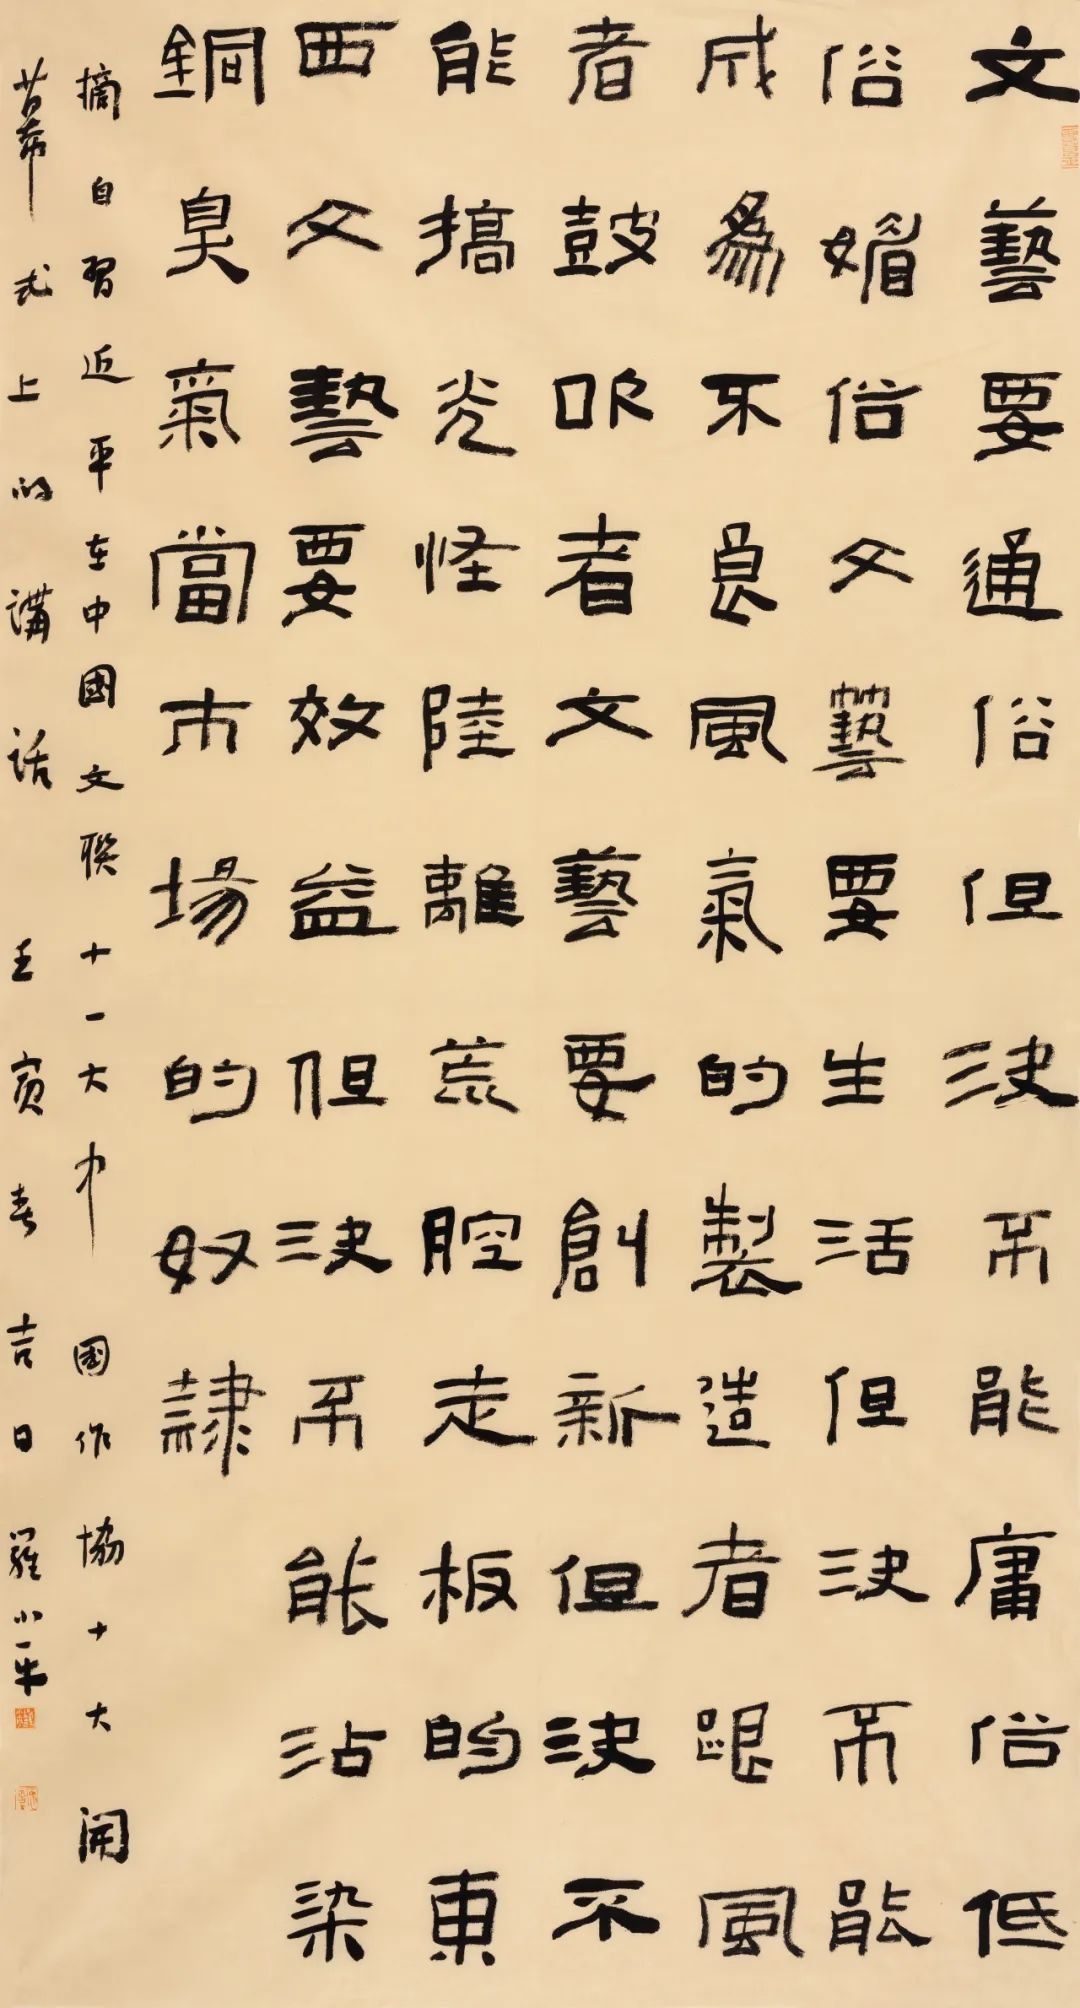 文藝要通俗但決不能庸俗低
俗媚俗文藝要生活但決不能
成爲不良風氣的製造者跟風
者鼓吹者文藝要創新但決不
能搞光怪陸離荒腔走板的東
西文藝要效益但決不能沾染
銅臭氣當市場的奴隸
摘自習近平在中國文聯十一大中國作協十大開
幕式上的講話 壬寅春吉日 羅小平